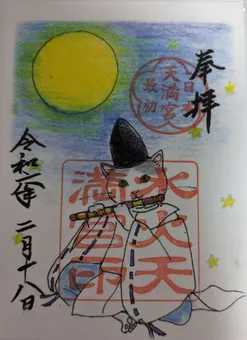 奉拝
日本
天満宮
最初
水火天
満宮印
令和二年二月十八日